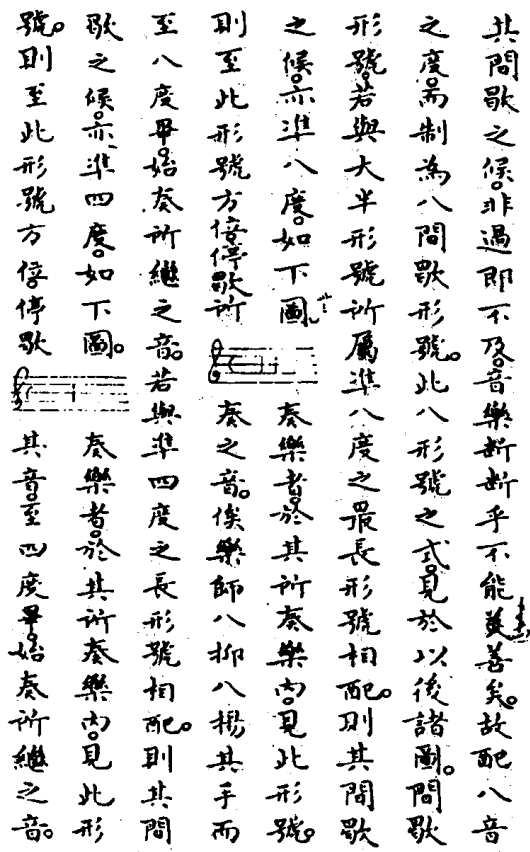 其間歇之候。非過即不及。音樂斷斷乎不能美善矣。故配八音
之度。而制為八間歇形號。此八形號之式。見於以後諸圖。間歇
形號。若與大半形號所屬準八度之最長形號相配。則其間歇
之候。亦準八度。如下圖。奏樂者。於其所奏樂內。見此形號。
則至此形號方倍停歇所奏之音。俟樂師八抑八揚其手而
至八度畢。始奏所繼之音。若與準四度之長形號相配。則其間
歇之候。亦準四度。如下圖。奏樂者。於其所奏樂內。見此形
號。則至此形號方倍。停歇其音。至四度畢。始奏所繼之音。